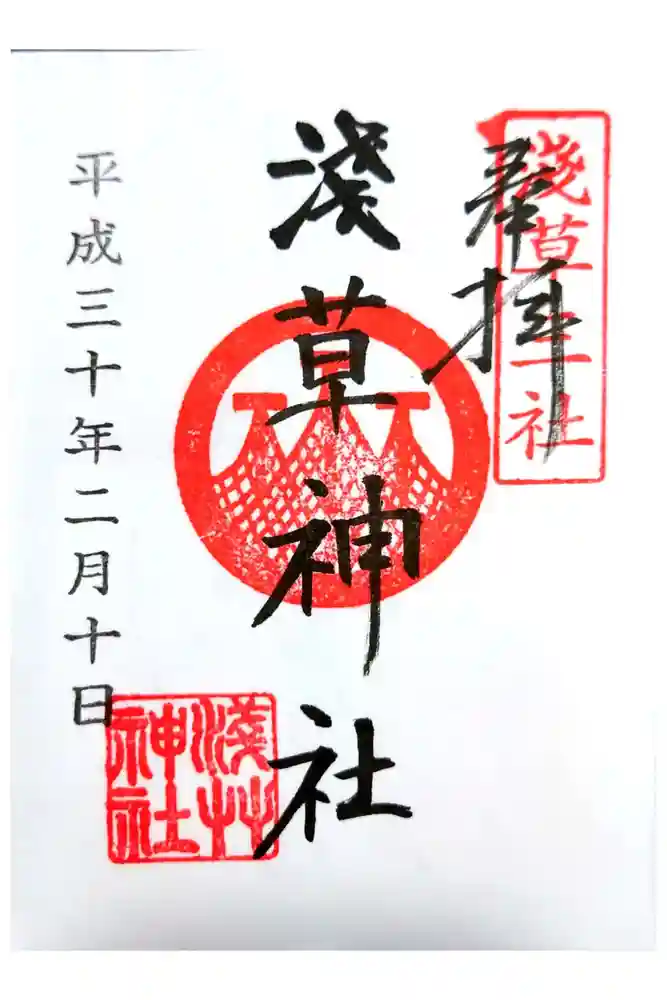 奉拝
淺草三社
淺草神社
淺草神社
平成三十年二月十日